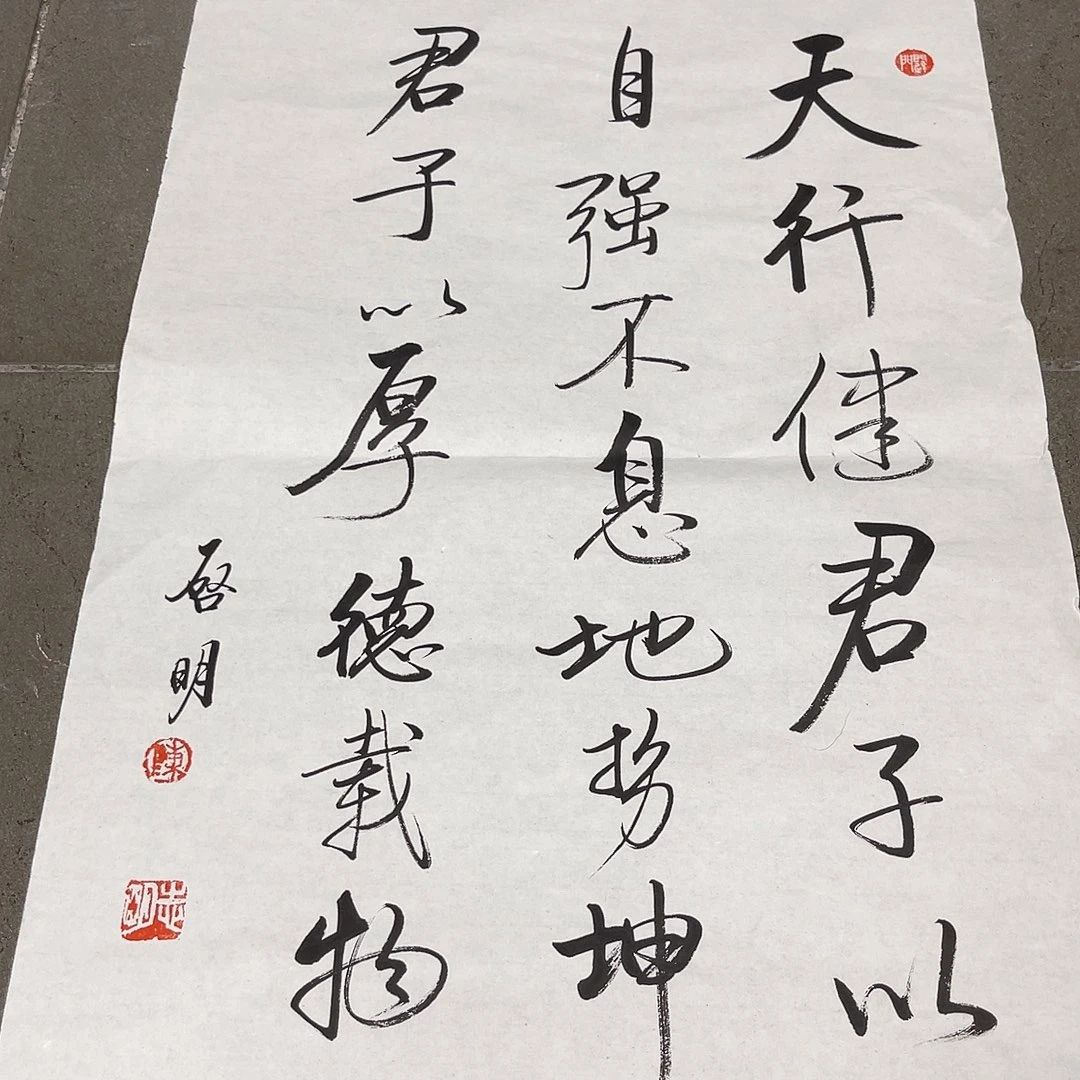 天行健君子以
自强不息地势坤
君子以厚德载物
启明